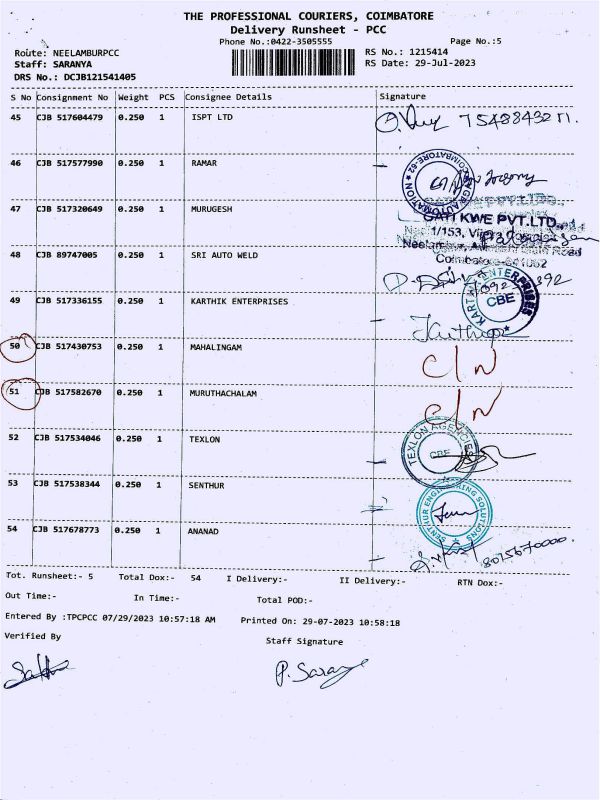 THE PROFESSIONAL COURIERS, COIMBATORE
Delivery Runsheet - PCC
Phone No.:0422-3505555 Page No.:5
Route: NEELAMBURPCC RS No.: 1215414
Staff: SARANYA RS Date: 29-Jul-2023
DRS No.: DCJB121541405
S No Consignment No Weight PCS Consignee Details Signature
45 CJB 517604479 0.250 1 ISPT LTD
46 CJB 517577990 0.250 1 RAMAR
COIMBATORE-62
AUTOMATION
47 CJB 517320649 0.250 1 MURUGESH
GATI KWE PVT.LTD.,
1/153,
Road
Coimbatore-641062
48 CJB 89747005 0.250 1 SRI AUTO WELD
49 CJB 517336155 0.250 1 KARTHIK ENTERPRISES
ENTERPRISES
CBE
Karthip
50 CJB 517430753 0.250 1 MAHALINGAM C/N
51 CJB 517582670 0.250 1 MURUTHACHALAM C/N
52 CJB 517534046 0.250 1 TEXLON
TEXLON AGENCIES
CBE
53 CJB 517538344 0.250 1 SENTHUR
SENTHUR ENGINEERING SOLUTIONS
54 CJB 517678773 0.250 1 ANANAD
8075670000
Tot. Runsheet:- 5 Total Dox:- 54 I Delivery:- II Delivery:- RTN Dox:-
Out Time:- In Time:- Total POD:-
Entered By :TPCPCC 07/29/2023 10:57:18 AM Printed On: 29-07-2023 10:58:18
Verified By Staff Signature
P. Saranya